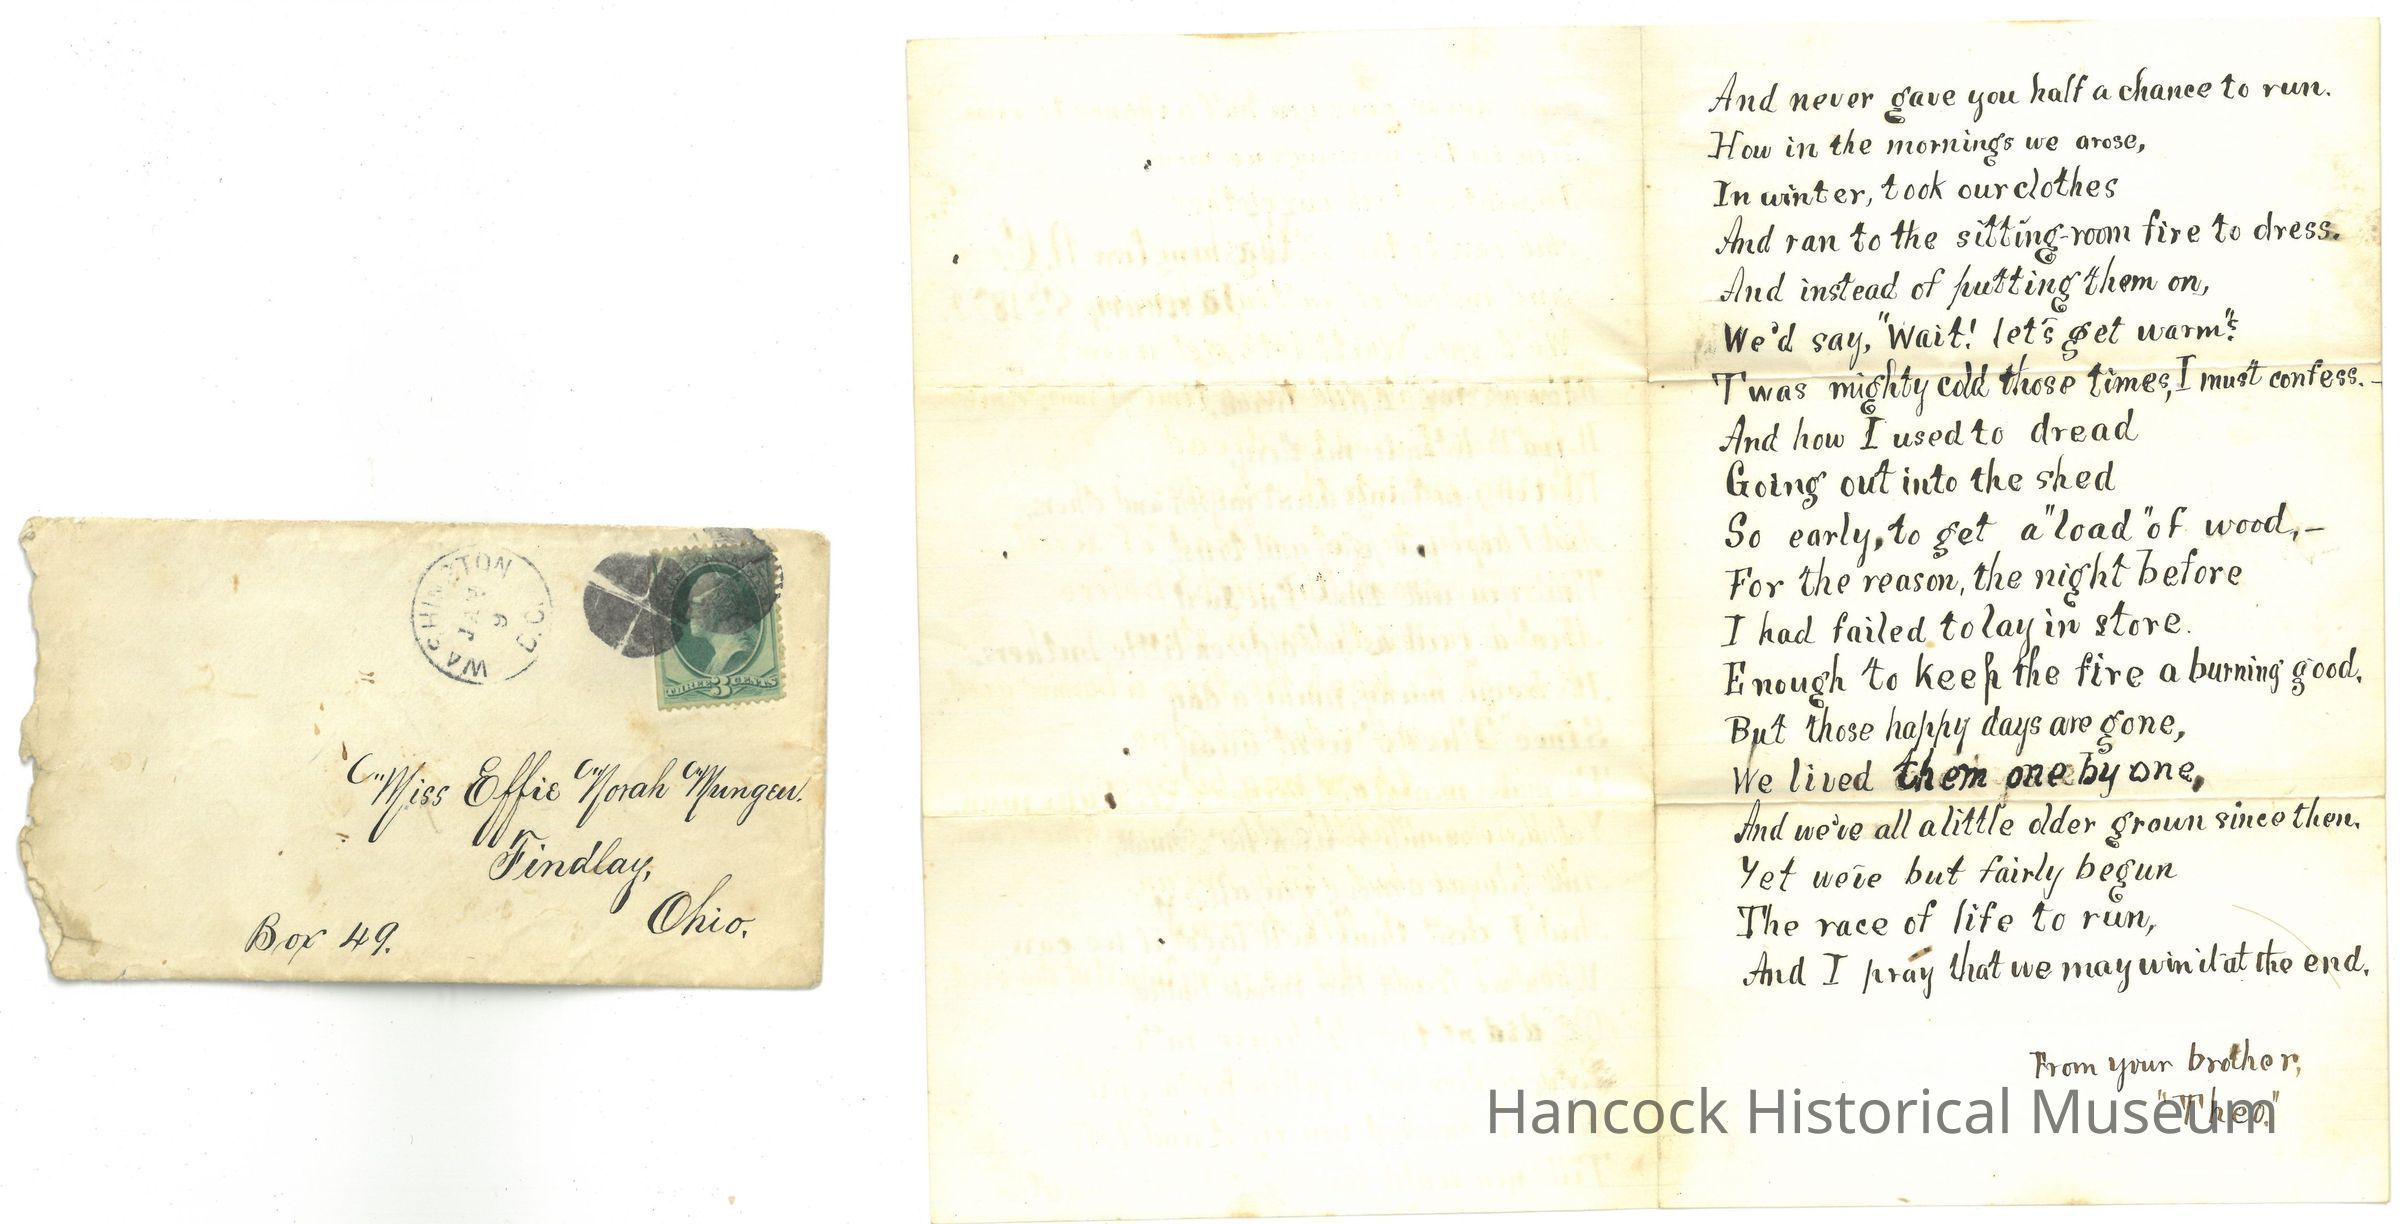 WASHINGTON
D.C.
JAN
9
THREE 3 CENTS
Miss Effie Norah Mungen.
Findlay,
Ohio.
Box 49.
And never gave you half a chance to run.
How in the mornings we arose,
In winter, took our clothes
And ran to the sitting-room fire to dress.
And instead of putting them on,
We'd say, "Wait! let's get warm":
Twas mighty cold those times, I must confess. -
And how I used to dread
Going out into the shed
So early, to get a "load" of wood, -
For the reason, the night before
I had failed to lay in store.
Enough to keep the fire a burning good.
But those happy days are gone,
We lived them one by one,
And we've all a little older grown since then.
Yet we've but fairly begun
The race of life to run,
And I pray that we may win it at the end.
From your brother,
"Theo."
Hancock Historical Museum